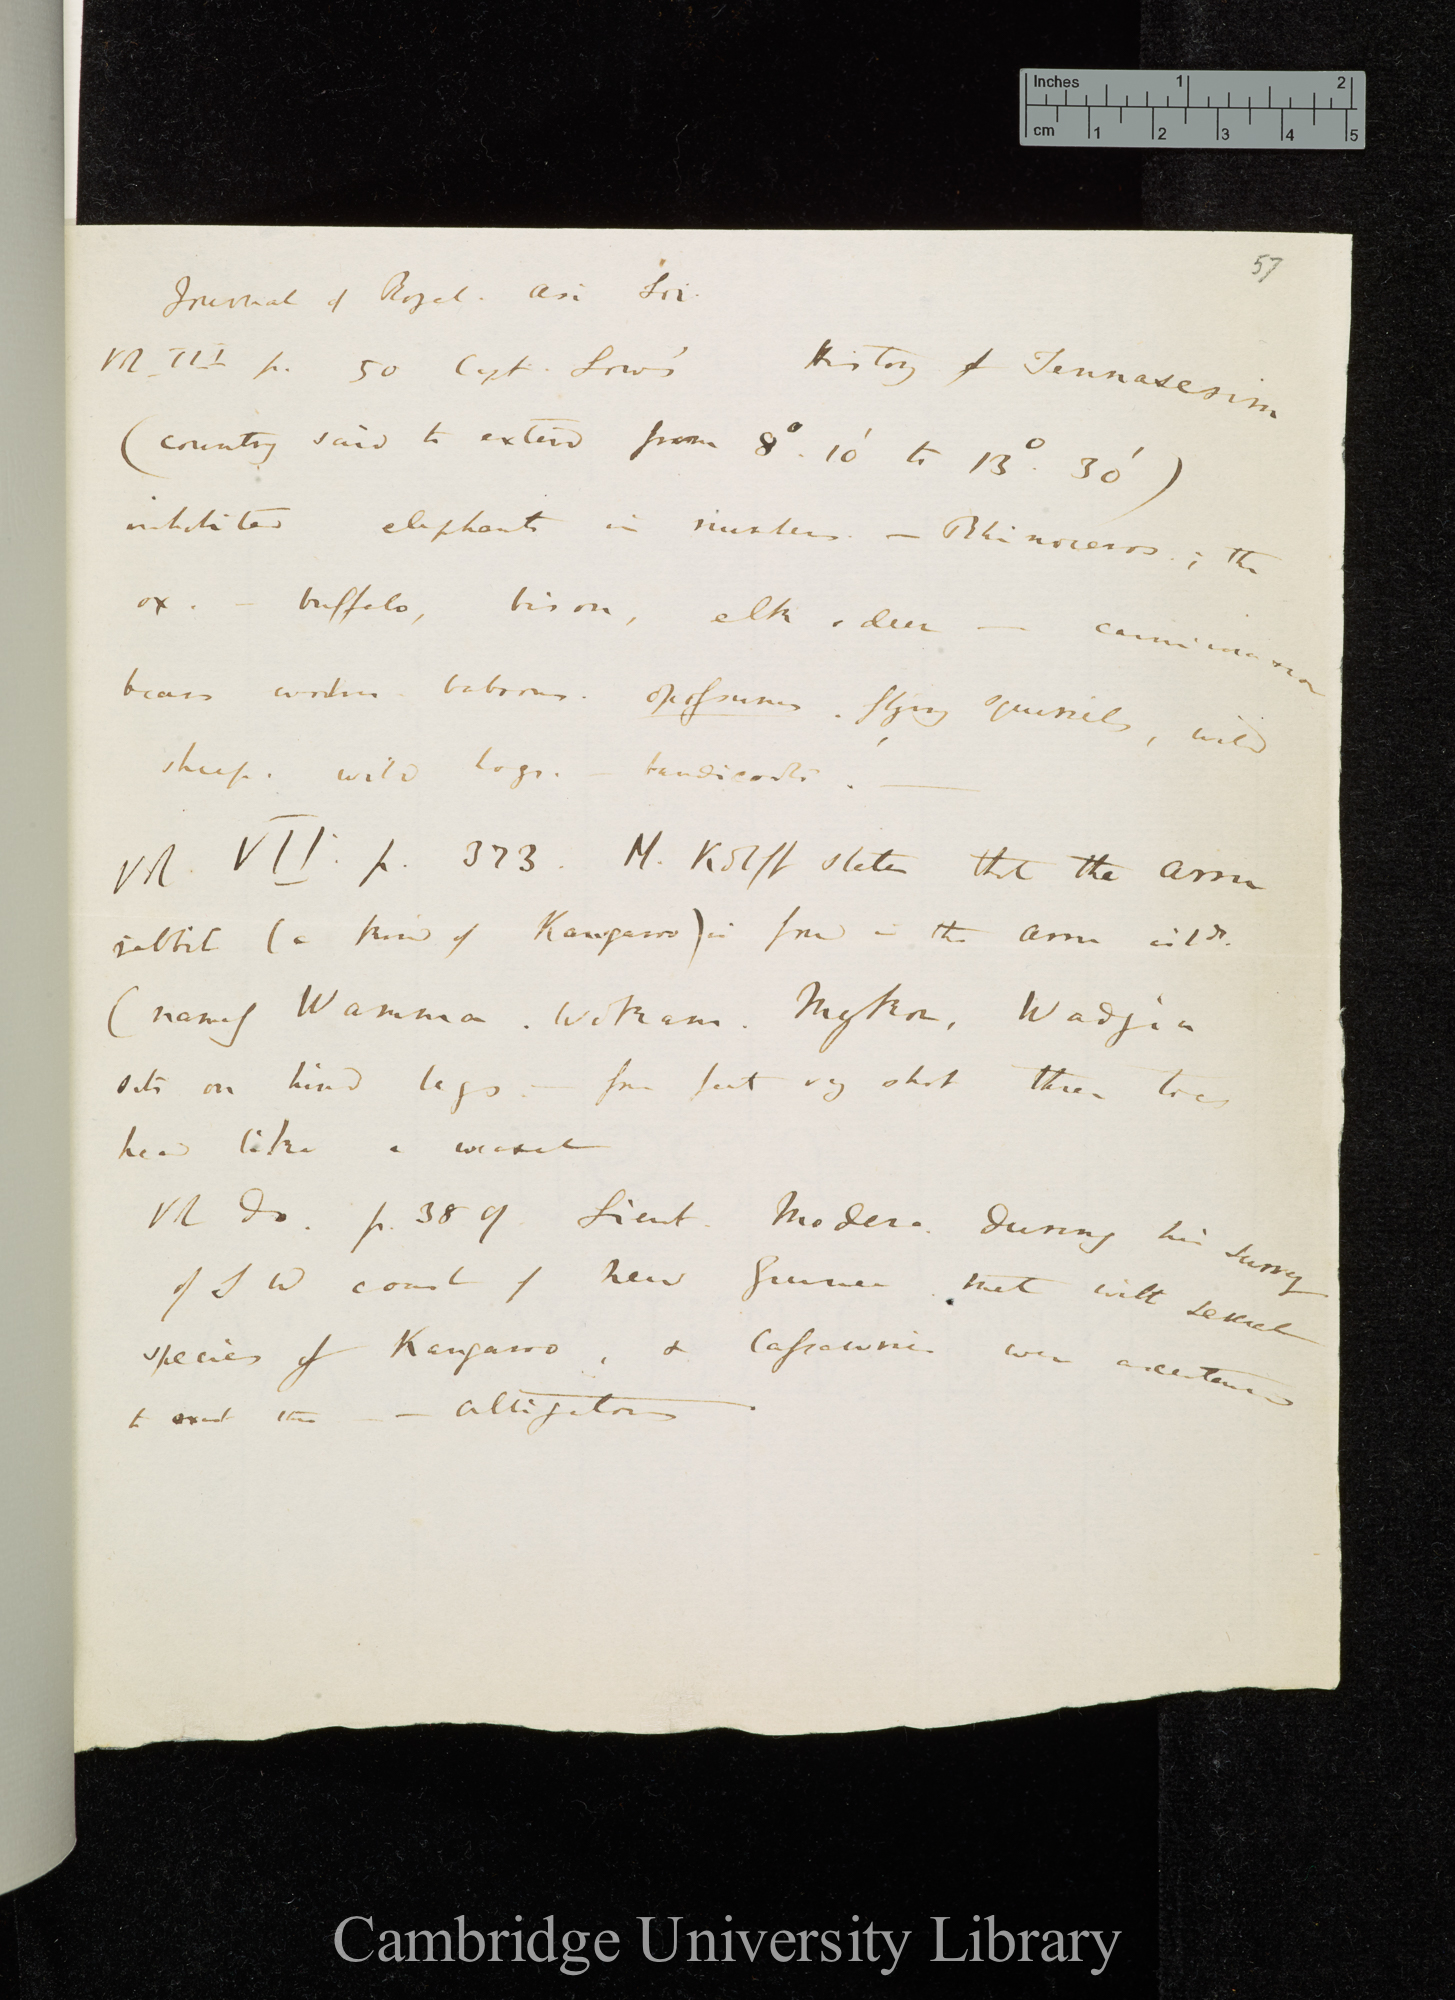 Inches 1 2
cm 1 2 3 4 5
57
Journal of Royal. Asi Soc.
Vol. III p. 50 Capt. Low's History of Tennaserim
(country said to extend from 8°. 10' to 13°. 30')
inhabited elephants in numbers. — Rhinoceros.; the
ox. — buffalo, bison, elk, deer —
bears baboons. opossums. flying squirrels, wild
sheep. wild hogs. — bandicoots. —
Vol. VII. p. 373. M. Kolff states that the Arru
rabbit (a kind of Kangaroo) is found in the Arru isl ds.
(named Wamma. Wokam. Maykor, Wadjia
sits on hind legs — fore feet very short three toes
head like a weasel
Vol do. p. 389 Lieut. Modera. during his survey
of S W coast of New Guinea. met with several
species of Kangaroo, & Cassowries were ascertained
to exist there — — alligators
Cambridge University Library